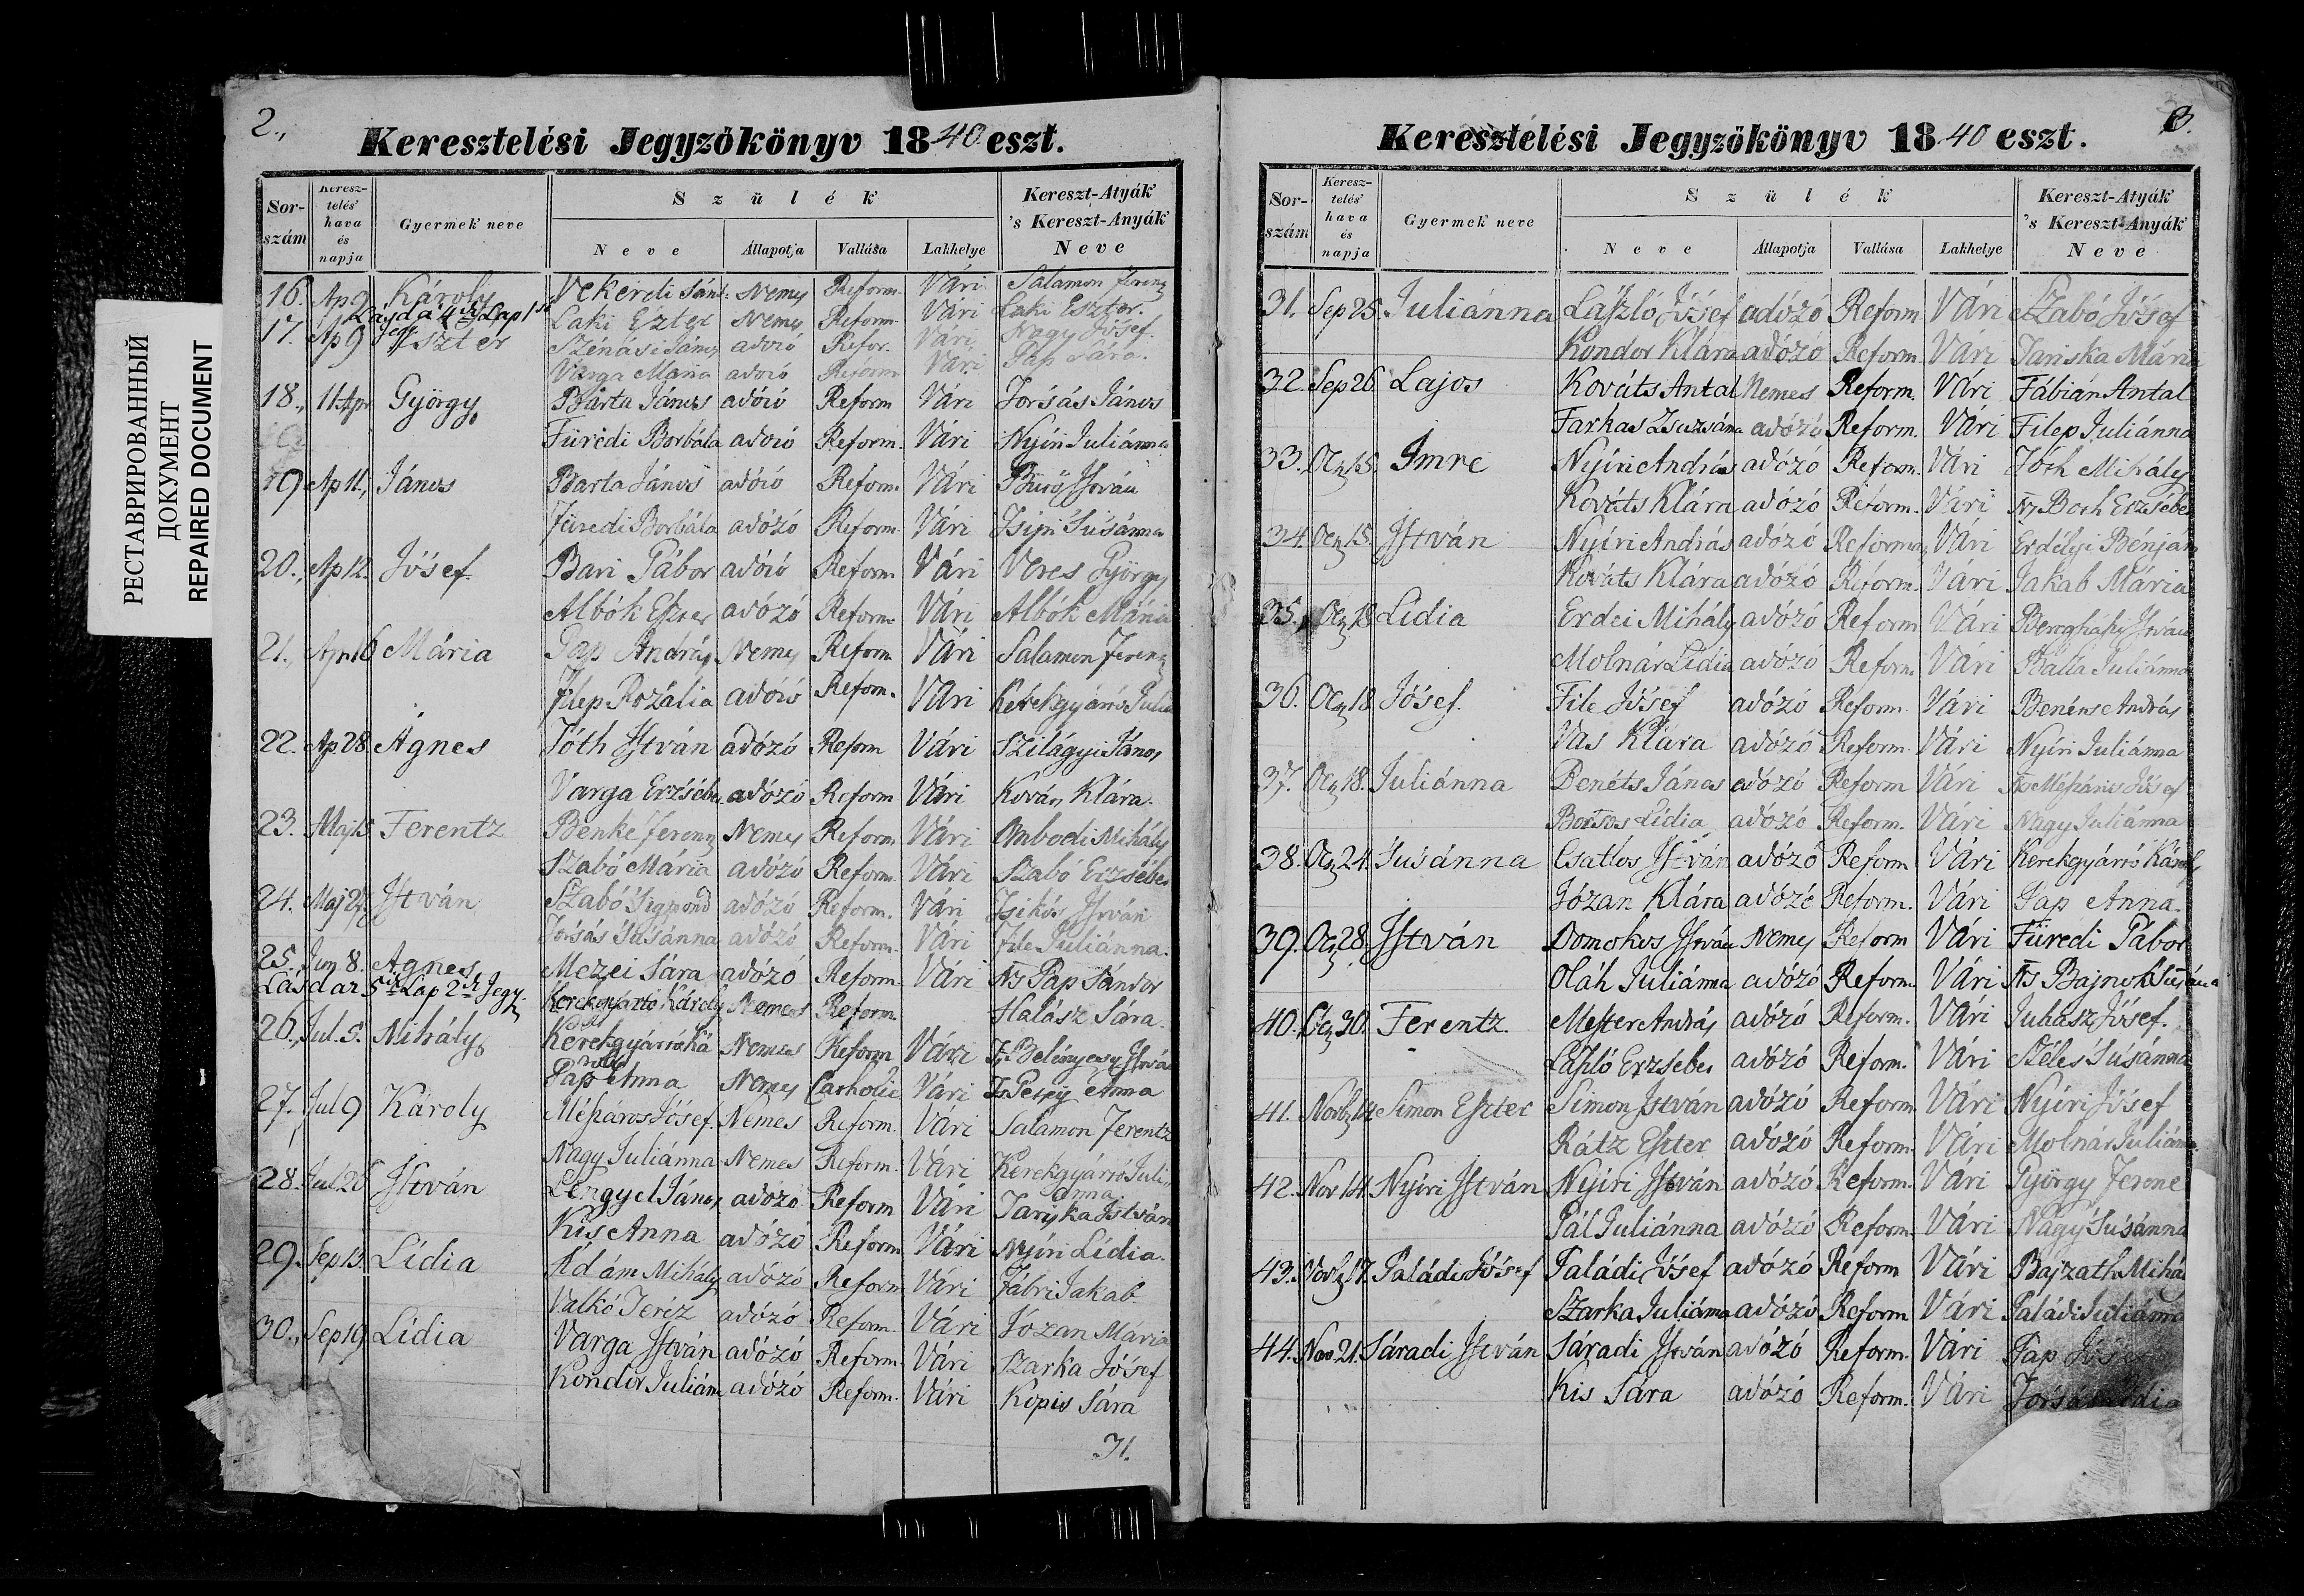 РЕСТАВРИРОВАННЫЙ
ДОКУМЕНТ
REPAIRED DOCUMENT
2.,
Keresztelési Jegyzökönyv 1840 eszt.
Sor-szám Keresz-telés' hava és napja Gyermek neve Szülék Kereszt-Atyák 's Kereszt-Anyák Neve
Neve Állapotja Vallása Lakhelye
16. Ap 9 Károly Vekerdi Sánd: Nemes Reform. Vári Salamon Ferentz
Lásd a 4dik Lap 1ső Jegy. Laki Ezter Nemes Reform. Vári Laki Eszter.
17. Ap 9 Eszter Szénási János adózó Refor. Vári Nagy Jósef.
Varga Mária adózó Reform Vári Pap Sára.
18., 11 Apr György Barta János adózó Reform Vári Forsás János
Füredi Borbála adózó Reform. Vári Nyíri Juliánna
19 Ap 11., János Barta János adózó Reform. Vári Biró István
Füredi Borbála adózó Reform. Vári Susánna
20., Ap 12. Jósef Bari Gábor adózó Reform. Vári Veres György
Albók Eszter adózó Reform. Vári Albók Mária
21., Apr 16 Mária Pap András Nemes Reform. Vári Salamon Ferentz
Filep Rozália adózó Reform. Vári Kerekgyártó Julia
22. Ap 28 Ágnes Tóth István adózó Reform Vári Szilágyi János
Varga Erzsébet adózó Reform Vári Kováts Klára.
23. Maj 15 Ferentz Benke Ferentz Nemes Reform. Vári Ombodi Mihály
Szabó Mária adózó Reform. Vári Szabó Erzsébet
24. Maj 27 István Szabó Sigmond adózó Reform. Vári Tsikós István
Forsás Susánna adózó Reform. Vári File Juliánna.
25. Jun 8. Ágnes Mezei Sára adózó Reform. Vári Ns Pap Sándor
Lásd az 5dik Lap 2dik Jegy. Kerekgyártó Károly Nemes Reform. Halász Sára.
26., Jul. 5. Mihály Kerekgyártó Ká roly Nemes Reform Vári Belényesy István
Pap Anna Nemes Catholic Vári Anna
27. Jul 9 Károly Mészáros Jósef. Nemes Reform. Vári Salamon Ferentz
Nagy Juliánna Nemes Reform. Vári Kerekgyártó Juli anna
28. Jul 26 István Lengyel János adózó Reform Vári Tariska István
Kis Anna adózó Reform Vári Nyíri Lídia.
29. Sep 13. Lídia Ádám Mihály adózó Reform Vári Fábri Jakab
Valkó Teréz adózó Reform. Vári Józan Mária
30., Sep 19. Lídia Varga István adózó Reform. Vári Szarka Jósef
Kondor Juliána adózó Reform. Vári Kopis Sára
31.
3.
Keresztelési Jegyzökönyv 1840 eszt.
Sor-szám Keresz-telés' hava és napja Gyermek neve Szülék Kereszt-Atyák 's Kereszt-Anyák Neve
Neve Állapotja Vallása Lakhelye
31. Sep 25. Juliánna László Jósef adózó Reform Vári Szabó Jósef
Kondor Klára adózó Reform. Vári Tariska Mária
32. Sep 26. Lajos Kováts Antal Nemes Reform. Vári Fábián Antal
Farkas Zsuzsána adózó Reform. Vári Filep Juliánna
33. Oct 15. Imre Nyíri András adózó Reform. Vári Tóth Mihály
Kováts Klára adózó Reform. Vári Ns Both Erzsébet
34. Oct 15. István Nyíri András adózó Reform. Vári Erdélyi Benjam
Kováts Klára adózó Reform. Vári Jakab Mária
35. Oct 18 Lídia Erdei Mihály adózó Reform Vári István
Molnár Lídia adózó Reform. Vári Balla Juliánna
36. Oct 18 Jósef. File Jósef adózó Reform. Vári Benéts András
Vas Klára adózó Reform. Vári Nyíri Juliánna
37. Oct 18. Juliánna Benéts János adózó Reform Vári Ns Mészáros Jósef
Borsos Lídia adózó Reform. Vári Nagy Juliánna
38. Oct 24. Susánna Csatlos István adózó Reform Vári Kerekgyártó Károly
Józan Klára adózó Reform. Vári Pap Anna.
39. Oct 28. István Domokos István Nemes Reform Vári Füredi Gábor
Oláh Juliánna adózó Reform. Vári Ns Bajnok Susána
40. Oct 30. Ferentz. Mester András adózó Reform. Vári Juhász Jósef.
László Erzsébet adózó Reform. Vári Széles Susánna
41. Novb 14 Simon Eszter Simon István adózó Reform Vári Nyíri Jósef
Rátz Eszter adózó Reform. Vári Molnár Juliánna.
42. Nov 14. Nyíri István Nyíri István adózó Reform. Vári György Ferenc
Pál Juliánna adózó Reform. Vári Nagy Susánna
43. Nov 17. Paládi Jósef Paládi Jósef adózó Reform Vári Bajzath Mihá
Szarka Juliánna adózó Reform. Vári Paládi Juliánna
44. Nov 21. Sáradi István Sáradi István adózó Reform. Vári Pap Jósef
Kis Sára adózó Reform. Vári Forsás Lídia